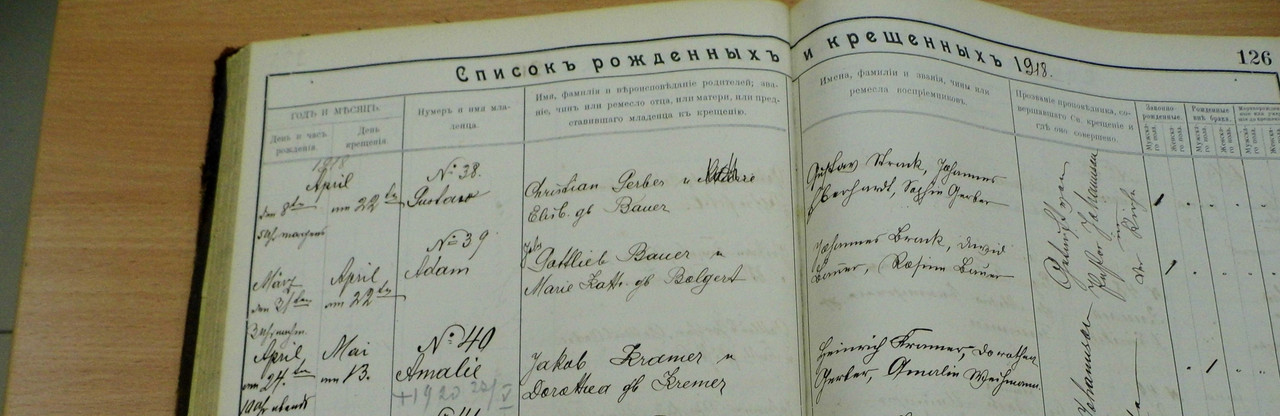 Списокъ рожденныхъ и крещенныхъ 1918.
126
ГОДЪ И МѢСЯЦЪ.
День и часъ рожденія.
День крещенія.
Нумеръ и имя младенца.
Имя, фамилія и вѣроисповѣданіе родителей; званіе, чинъ или ремесло отца, или матери, или представившаго младенца къ крещенію.
Имена, фамиліи и званія, чины или ремесла воспріемниковъ.
Прозваніе проповѣдника, совершавшаго Св. крещеніе и гдѣ оно совершено.
Законнорожденные.
Мужского пола.
Женского пола.
Рожденные внѣ брака.
Мужского пола.
Женского пола.
1918
April
den 8ten
am 22ten
5 Uhr morgens
№ 38.
Gustav
Christian Gerber u
Elis. gb Bauer
Gustav Strack, Johannes
Eberhardt, Sophie Gerber
März
den 31ten
3 Uhr
April
am 22ten
№ 39
Adam
Gottlieb Bauer u
Marie Kath. gb Bolgert
Johannes Brack, David
Bauer, Rosine Bauer
Pastor Johannsen
in
der Kirche
April
am 24ten
10 Uhr abends
Mai
am 13.
№ 40
Amalie
+1920
Jakob Kramer u
Dorothea gb Kremer
Heinrich Kramer, Dorothea
Gerber, Amalie Weihmann
Johannsen